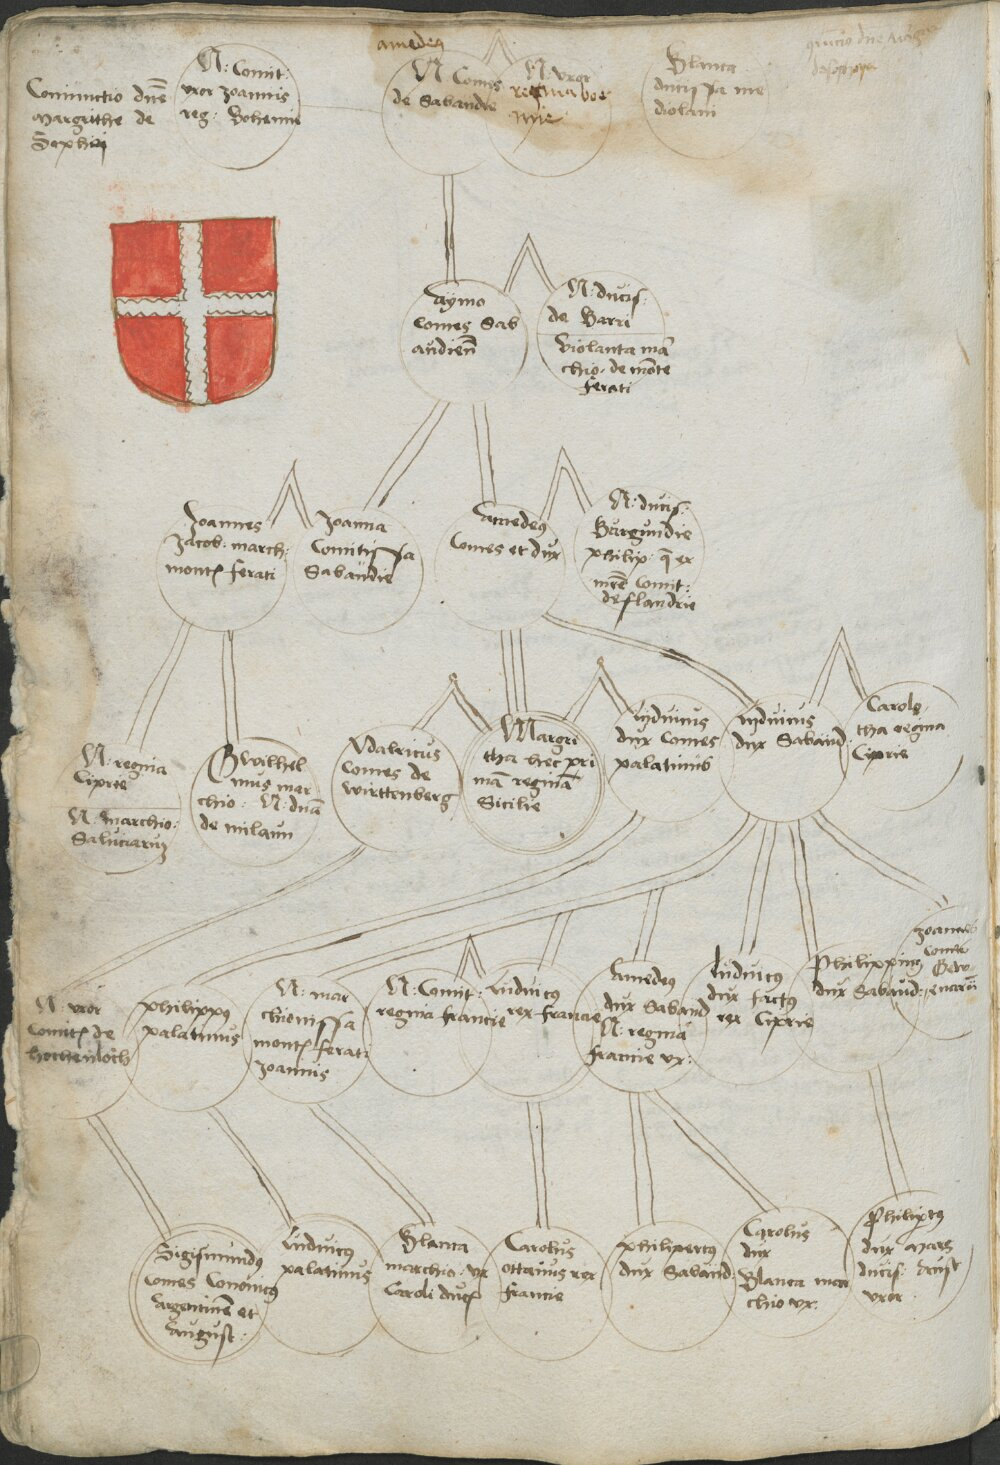 Coniunctio dnē
margrithe de
N: Comit:
vxor Joannis
reg: Bohemie
amedeꝰ
N Comes
de Sabaudie
N: vxor
regina boe
mie
Blanca
ducissa me
diolani
Aymo
Comes Sab
audien̄
N: ducis:
de Barri
Violanta mar
chio: de mōte
ferati
Joannes
Jacob: march:
montꝭ ferati
Joanna
Comitissa
Sabaudie
Amedeꝰ
Comes et dux
N: ducis:
Burgundie
philip: q̄ ex
mr̄e Comit:
de flandrie
N: regina
Ciprie
N: marchio:
Saluciarum
Gwilhel
mus mar
chio: N: ducā
de milaun
Vdalricus
Comes de
wirttenberg
Margri
tha hec pri
mā reginā
Sicilie
Luduicus
dux Comes
palatinus
Luduicus
dux Sabaud:
Carolo
tha regina
Ciprie
N: vxor
Comitꝭ de
hochenloch
philippꝰ
palatinus
N: mar
chionissa
montꝭ ferati
Joannis
N: Comit:
regina francie
Luduicꝰ
rex francie
Amedeꝰ
dux Sabaud
N: regina
francie vx:
Luduicꝰ
dux factꝰ
rex Ciprie
Philippinꝰ
dux Sabaud:
Joannes
Comes
Gebe
nenarū
Sigismundꝰ
Comes Canonicꝰ
Argentinēn et
August:
Luduicꝰ
palatinus
Blanca
marchio: vx
Caroli ducꝭ
Carolus
ottauus rex
francie
philipertꝰ
dux Sabaud:
Carolus
dux
Blanca mar
chio vx:
Philiptꝰ
dux marg
ducis: Aust
vxor